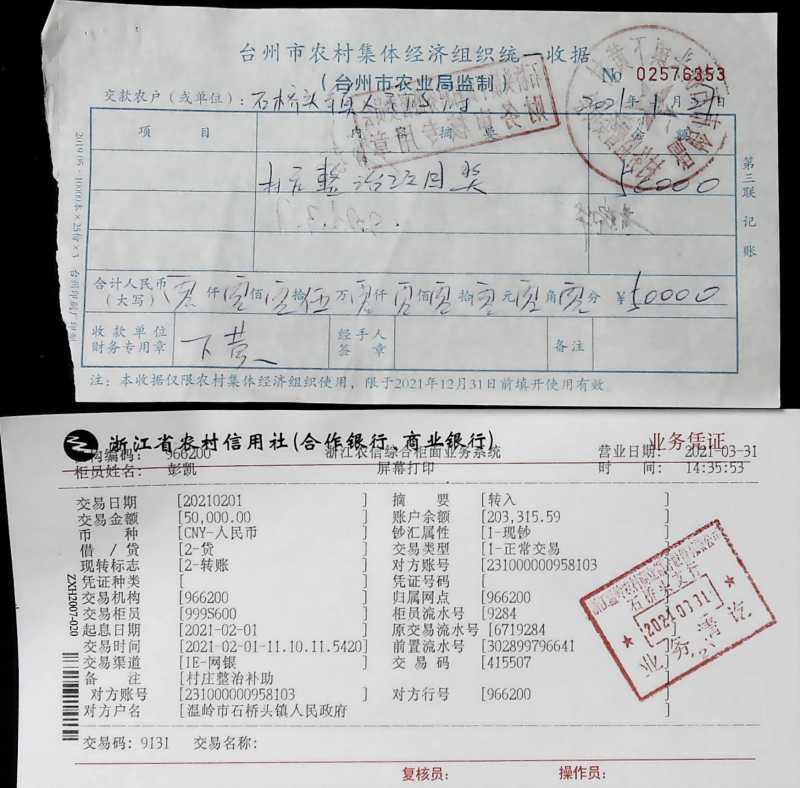 台州市农村集体经济组织统一收据
(台州市农业局监制)
No 02576353
交款农户（或单位）：石桥头镇人民政府 2021年1月31日
项 目 内 容 摘 要 金 额
村庄整治项目奖 50000
合计人民币（大写） 仟 佰 拾伍万 仟 佰 拾 元 角 分 ¥50000
收款单位财务专用章 下黄 经手人签章 备注
注：本收据仅限农村集体经济组织使用，限于2021年12月31日前填开使用有效。
第三联 记账
财务专用章
浙江省农村信用社(合作银行、商业银行) 业务凭证
机构编码： 966200 浙江农信综合柜面业务系统 营业日期： 2021-03-31
柜员姓名： 彭凯 屏幕打印 时 间： 14:35:53
交易日期 [20210201 ] 摘 要 [转入 ]
交易金额 [50,000.00 ] 账户余额 [203,315.59 ]
币 种 [CNY-人民币 ] 钞汇属性 [1-现钞 ]
借 / 贷 [2-贷 ] 交易类型 [1-正常交易 ]
现转标志 [2-转账 ] 对方账号 [231000000958103 ]
凭证种类 [ ] 凭证号码 [ ]
交易机构 [966200 ] 归属网点 [966200 ]
交易柜员 [999S600 ] 柜员流水号 [9284
起息日期 [2021-02-01 ] 原交易流水号 [6719284
交易时间 [2021-02-01-11.10.11.5420] 前置流水号 [302899796641
交易渠道 [IE-网银 ] 交 易 码 [415507
备 注 [村庄整治补助
对方账号 [231000000958103 ] 对方行号 [966200 ]
对方户名 [温岭市石桥头镇人民政府 ]
交易码: 9131 交易名称:
复核员: 操作员:
ZXH2007-020
石桥头支行
2021.03.31
业务清讫